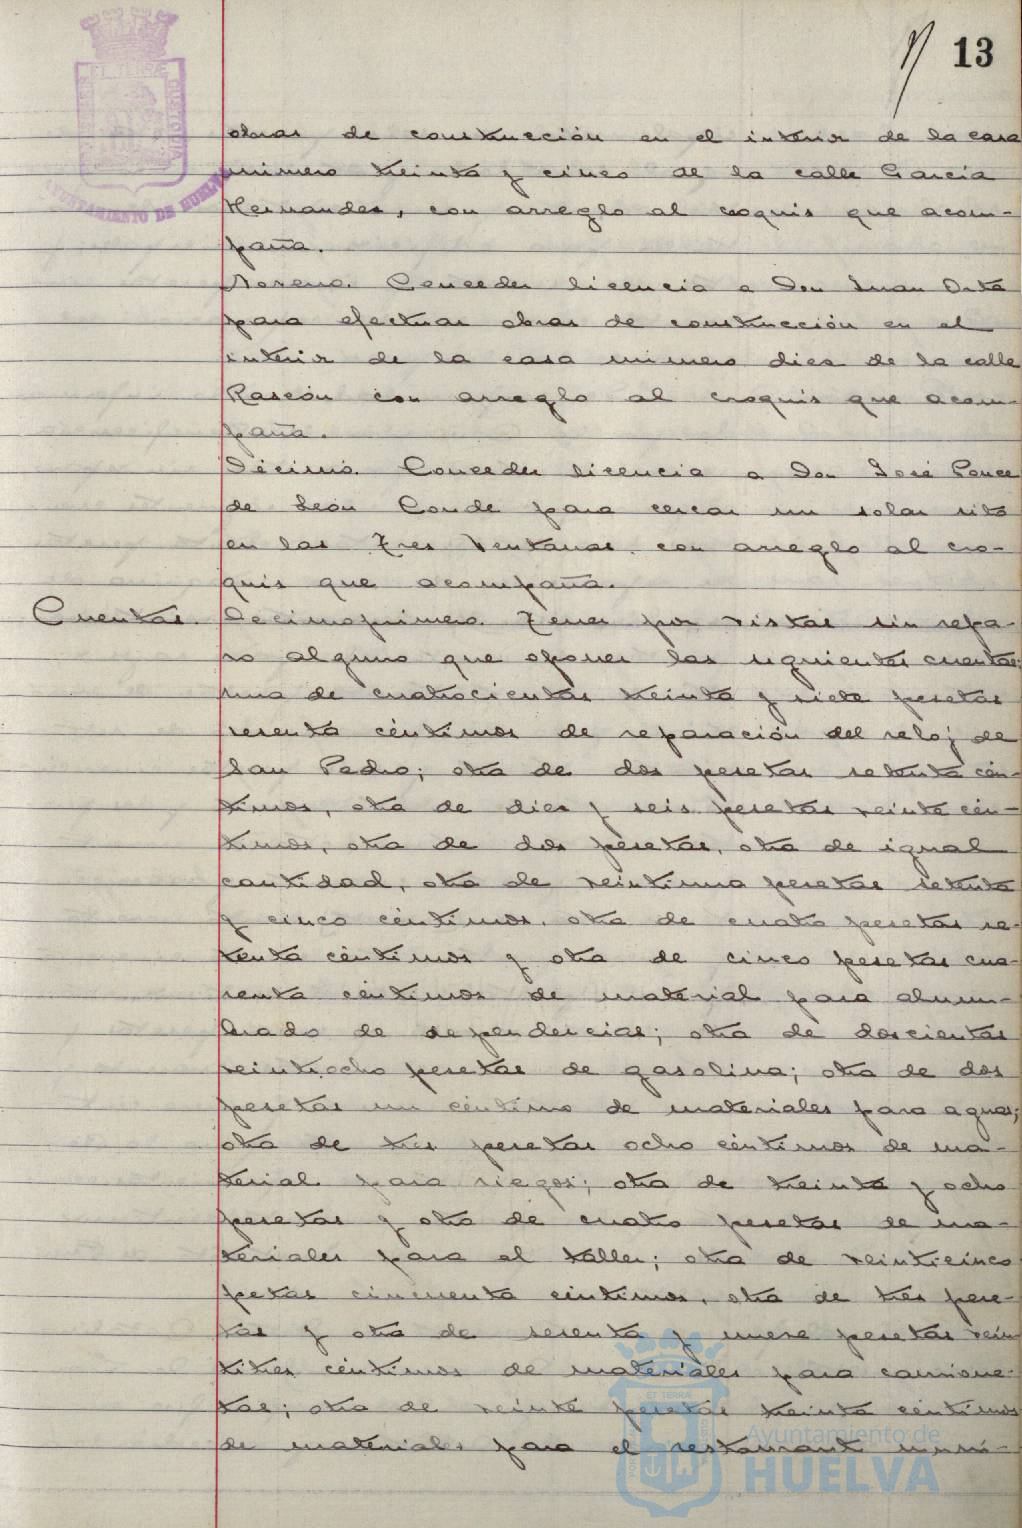 13
obras de construcción en el interior de la casa
número treinta y cinco de la calle García
Hernandez, con arreglo al croquis que acom-
paña.
Noveno. Conceder licencia a Don Juan Orta
para efectuar obras de construcción en el
interior de la casa número diez de la calle
Rascón con arreglo al croquis que acom-
paña.
Décimo. Conceder licencia a Don José Ponce
de León Conde para cercar un solar sito
en las Tres Ventanas, con arreglo al cro-
quis que acompaña.
Cuentas. Decimoprimero. Tener por vistas sin repa-
ro alguno que oponer las siguientes cuentas:
una de cuatrocientas treinta y siete pesetas
sesenta céntimos de reparación del reloj de
San Pedro; otra de dos pesetas setenta cén-
timos, otra de diez y seis pesetas veinte cén-
timos, otra de dos pesetas, otra de igual
cantidad, otra de veintiuna pesetas setenta
y cinco céntimos, otra de cuatro pesetas se-
tenta céntimos y otra de cinco pesetas cua-
renta céntimos de material para alum-
brado de dependencias; otra de doscientas
veintiocho pesetas de gasolina; otra de dos
pesetas un céntimo de materiales para aguas;
otra de tres pesetas ocho céntimos de ma-
terial para riegos; otra de treinta y ocho
pesetas y otra de cuatro pesetas de ma-
teriales para el taller; otra de veinticinco
petas cincuenta céntimos, otra de tres pese-
tas y otra de sesenta y nueve pesetas vein
titres céntimos de materiales para camione-
tas; otra de veinte pesetas treinta céntimos
de materiales para el restaurante muni-
AYUNTAMIENTO DE HUELVA
ET TERRAE
Ayuntamiento de
HUELVA